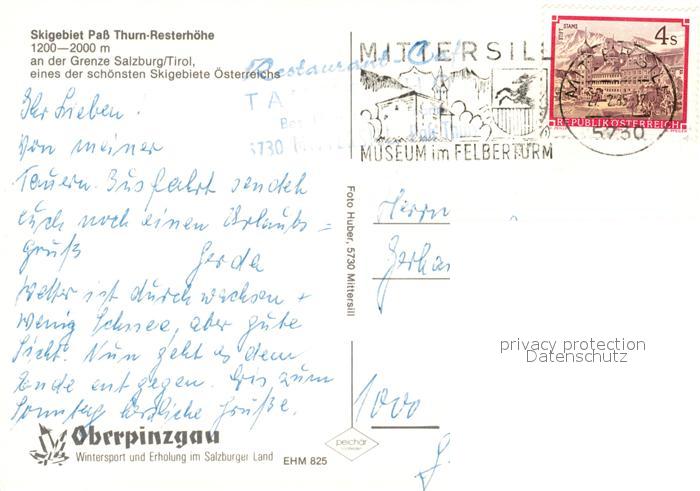 Skigebiet Paß Thurn-Resterhöhe
1200—2000 m
an der Grenze Salzburg/Tirol,
eines der schönsten Skigebiete Österreichs
Restaurant
TA
5730
MITTERSILL
MUSEUM im FELBERTURM
STIFT STAMS
4 s
REPUBLIK ÖSTERREICH
5730
Ihr Lieben!
Von meiner
Tauern Busfahrt sendet
euch noch einen Urlaubs=
gruß Gerda
Wetter ist durchwachsen +
wenig Schnee, aber gute
Sicht. Nun geht es dem
Ende entgegen. Bis zum
Sonntag herzliche Grüße.
Foto Huber, 5730 Mittersill
Herrn
Gerha
privacy protection
Datenschutz
1000
Oberpinzgau
Wintersport und Erholung im Salzburger Land
EHM 825
peichär